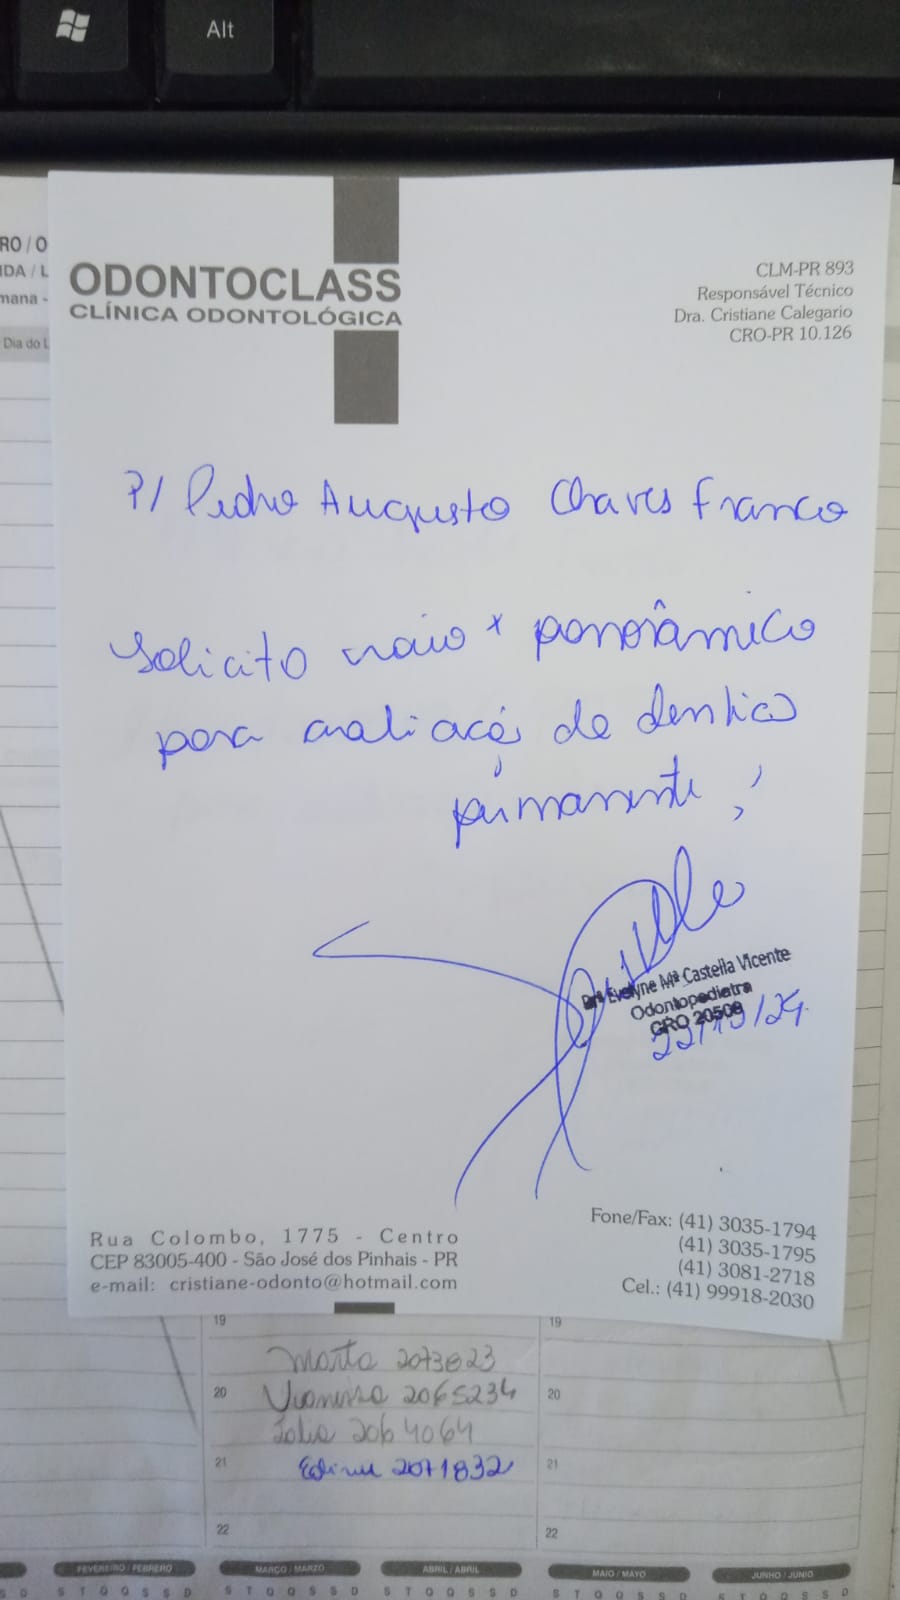 Alt
RO / O
IDA / L
mana -
Dia do L
ODONTOCLASS
CLÍNICA ODONTOLÓGICA
CLM-PR 893
Responsável Técnico
Dra. Cristiane Calegario
CRO-PR 10.126
P/ Pedro Augusto Chaves Franco
Solicito raio x panorâmico
para avaliação de dentição
permanente
Drª Evelyne Mª Castella Vicente
Odontopediatra
CRO 20508
Rua Colombo, 1775 - Centro
CEP 83005-400 - São José dos Pinhais - PR
e-mail: cristiane-odonto@hotmail.com
Fone/Fax: (41) 3035-1794
(41) 3035-1795
(41) 3081-2718
Cel.: (41) 99918-2030
19 19
Marta 2073823
20 2065234 20
2064064
21 2071832 21
22 22
FEVEREIRO / FEBRERO MARÇO / MARZO ABRIL / ABRIL MAIO / MAYO JUNHO / JUNIO
S D S T Q Q S S D S T Q Q S S D S T Q Q S S D S T Q Q S S D S T Q Q S S D